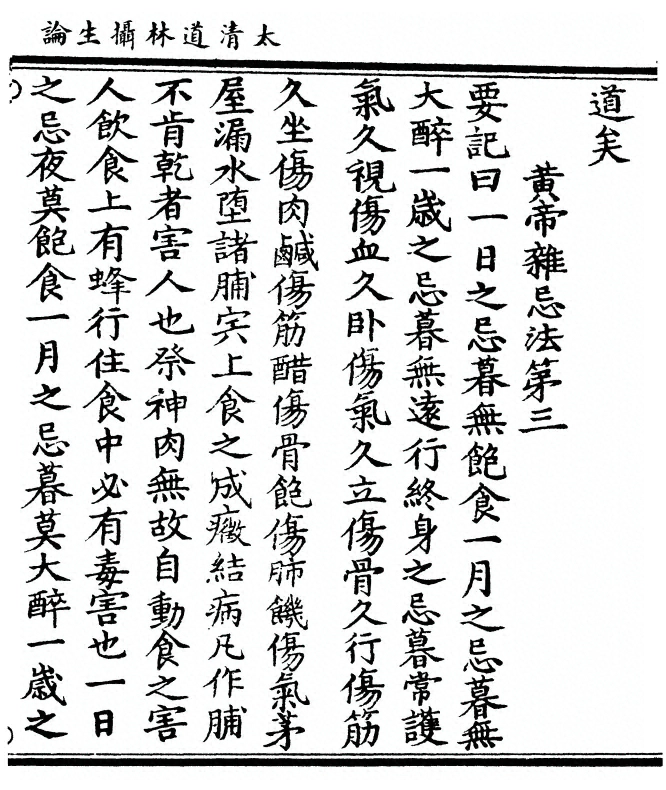 太清道林攝生論
道矣
黃帝雜忌法第三
要記曰一日之忌暮無飽食一月之忌暮無
大醉一歲之忌暮無遠行終身之忌暮常護
氣久視傷血久卧傷氣久立傷骨久行傷筋
久坐傷肉鹹傷筋醋傷骨飽傷肺饑傷氣茅
屋漏水墮諸脯宍上食之成癥結病凡作脯
不肯乾者害人也祭神肉無故自動食之害
人飲食上有蜂行住食中必有毒害也一日
之忌夜莫飽食一月之忌暮莫大醉一歲之